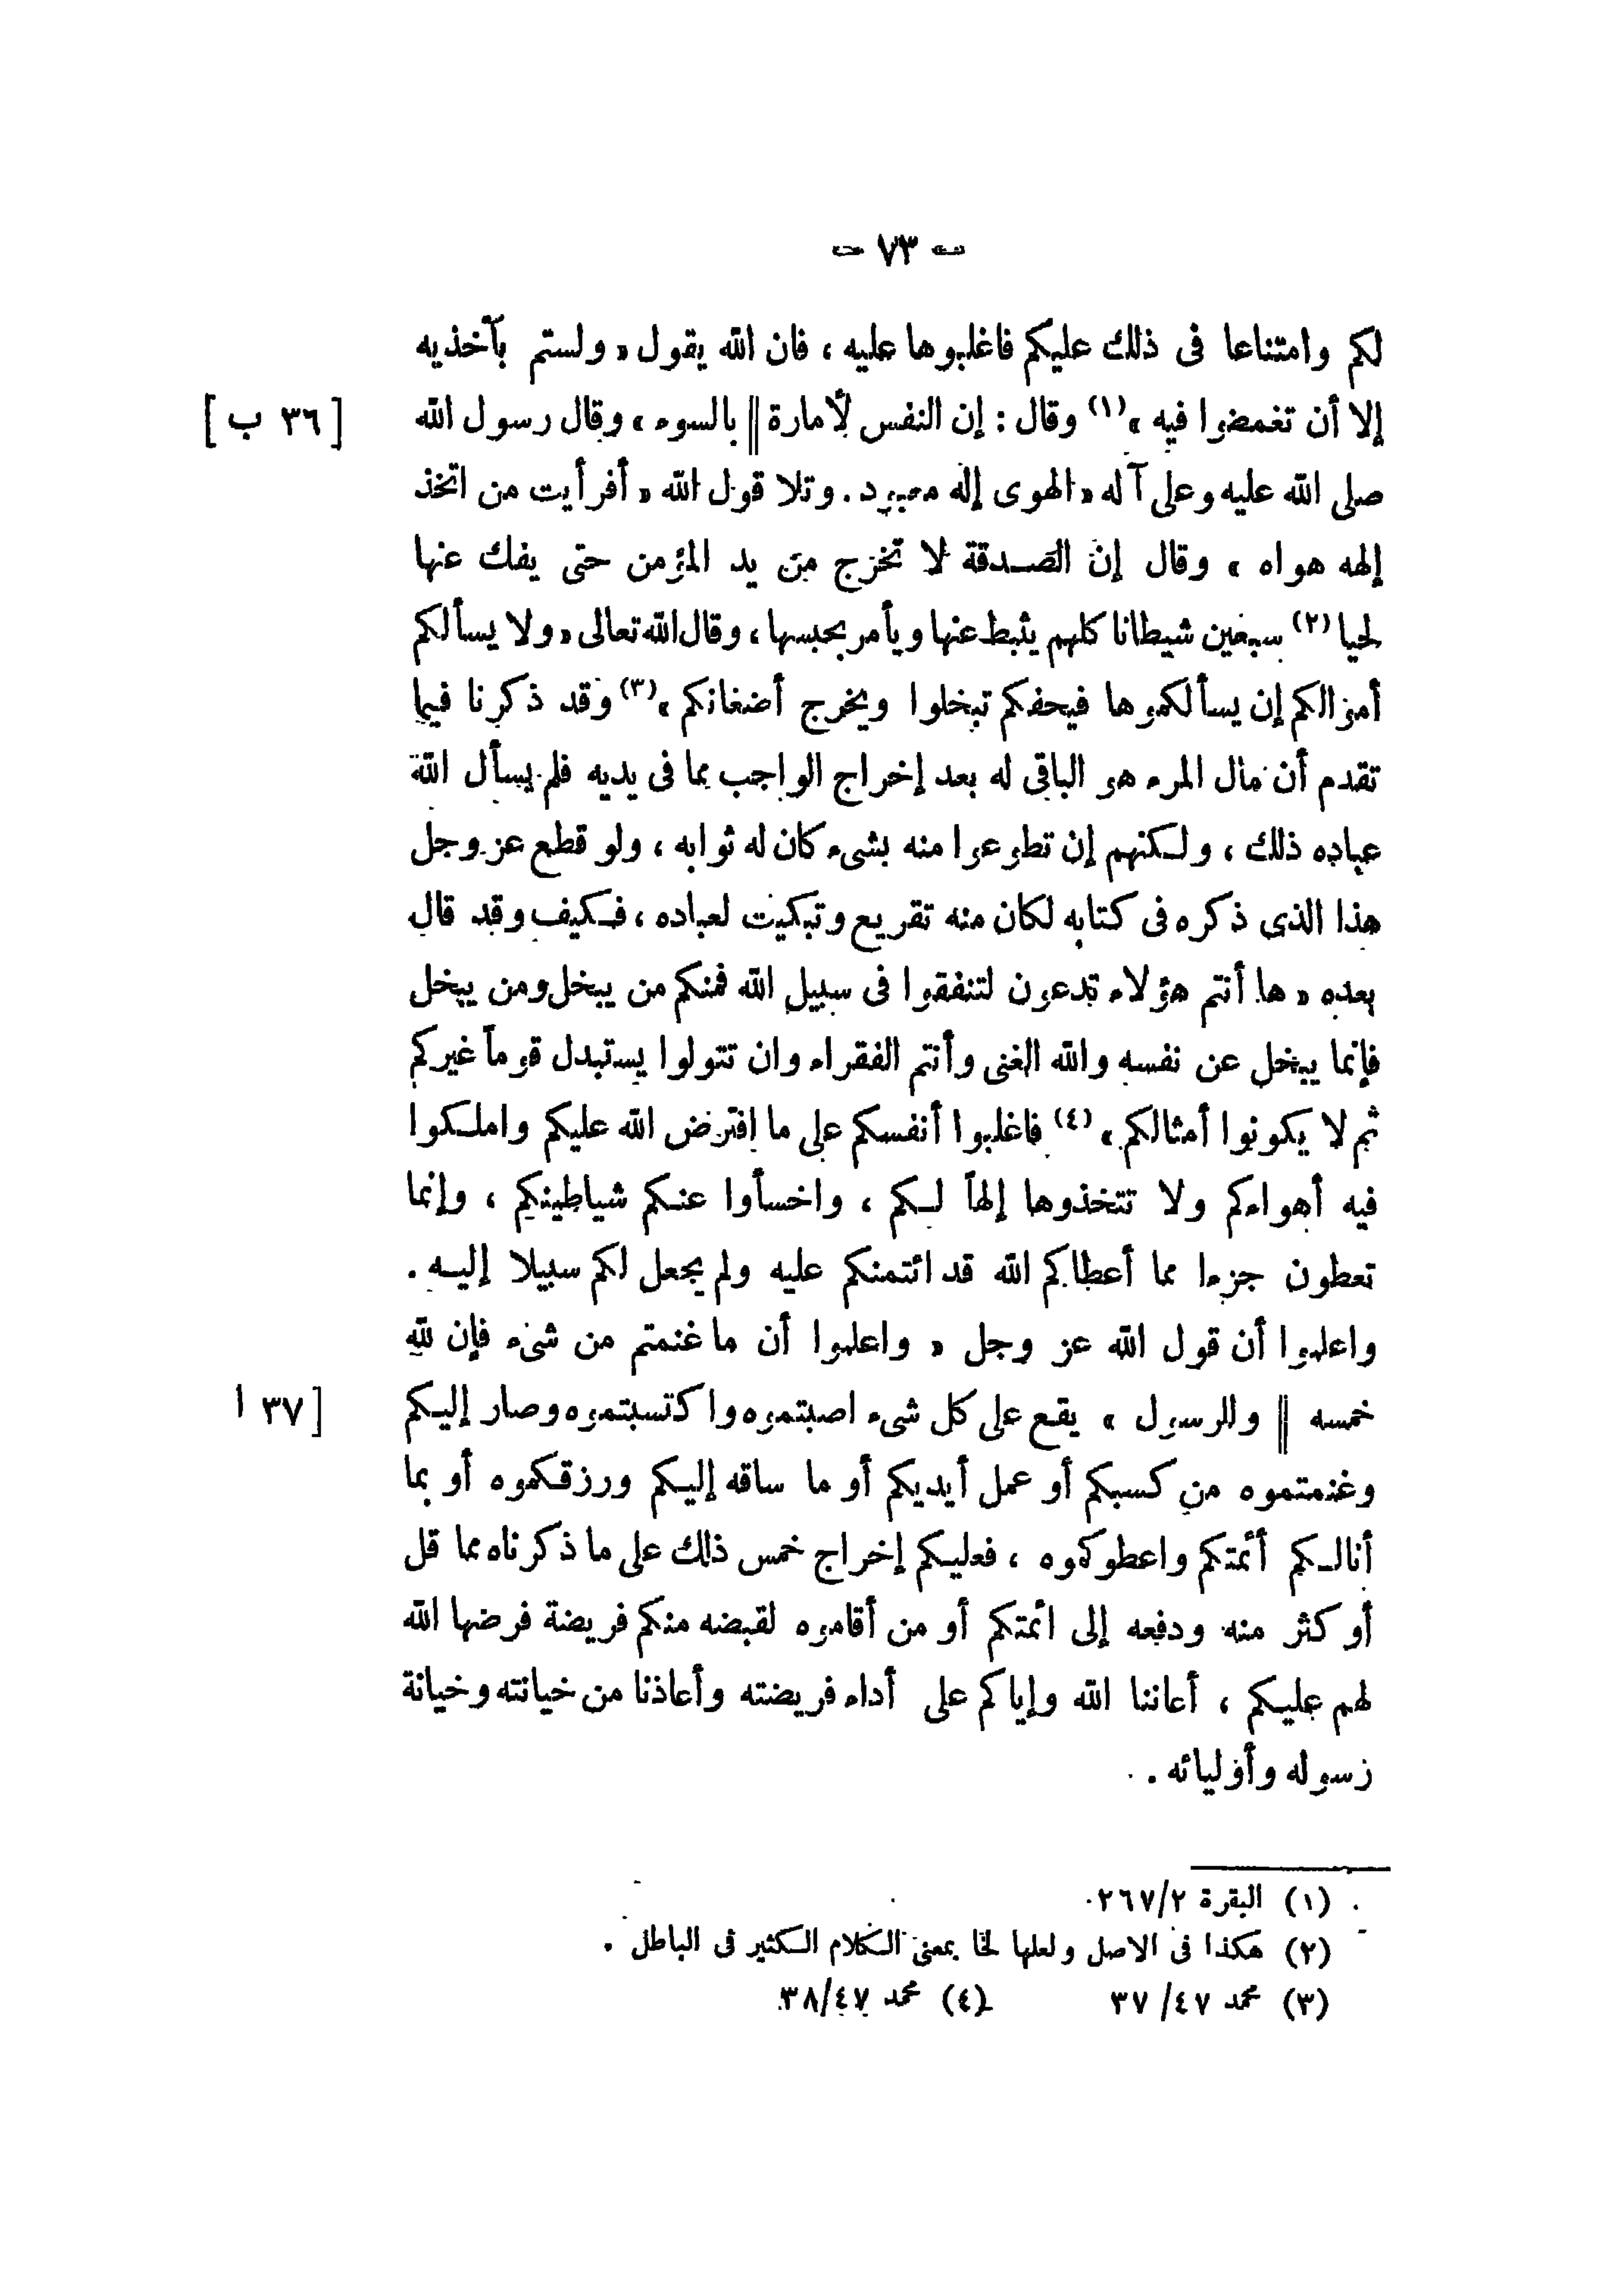 - ٧٣ -
لكم وامتناعا فى ذلك عليكم فاغلبوها عليه ، فان الله يقول « ولستم بآخذيه
إلا أن تغمضوا فيه » (١) وقال : إن النفس لأمارة || بالسوء » وقال رسول الله [ ٣٦ ب ]
صلى الله عليه وعلى آله « الهوى إله معبود . وتلا قول الله « أفرأيت من اتخذ
إلهه هواه » وقال إن الصدقة لا تخرج من يد المؤمن حتى يفك عنها
لحيا (٢) سبعين شيطانا كلهم يثبط عنها ويأمر بحبسها ، وقال الله تعالى « ولا يسألكم
أموالكم إن يسألكموها فيحفكم تبخلوا ويخرج أضغانكم » (٣) وقد ذكرنا فيما
تقدم أن مال المرء هو الباقى له بعد إخراج الواجب مما فى يديه فلم يسأل الله
عباده ذلك ، ولكنهم إن تطوعوا منه بشىء كان له ثوابه ، ولو قطع عز وجل
هذا الذى ذكره فى كتابه لكان منه تقريع وتبكيت لعباده ، فكيف وقد قال
بعده « ها أنتم هؤلاء تدعون لتنفقوا فى سبيل الله فمنكم من يبخل ومن يبخل
فإنما يبخل عن نفسه والله الغنى وأنتم الفقراء وان تتولوا يستبدل قوماً غيركم
ثم لا يكونوا أمثالكم » (٤) فاغلبوا أنفسكم على ما افترض الله عليكم واملكوا
فيه أهواءكم ولا تتخذوها إلهاً لكم ، واخسأوا عنكم شياطينكم ، وإنما
تعطون جزءا مما أعطاكم الله قد ائتمنكم عليه ولم يجعل لكم سبيلا إليه .
واعلموا أن قول الله عز وجل « واعلموا أن ما غنمتم من شىء فإن لله
خمسه || وللرسول » يقع على كل شىء اصبتموه واكتسبتموه وصار إليكم [ ٣٧ ا
وغنمتموه من كسبكم أو عمل أيديكم أو ما ساقه إليكم ورزقكموه أو بما
أنالكم أئمتكم واعطوكموه ، فعليكم إخراج خمس ذلك على ما ذكرناه مما قل
أو كثر منه ودفعه إلى ائمتكم أو من أقاموه لقبضه منكم فريضة فرضها الله
لهم عليكم ، أعاننا الله وإياكم على أداء فريضته وأعاذنا من خيانته وخيانة
رسوله وأوليائه .
(١) البقرة ٢٦٧/٢ .
(٢) هكذا فى الاصل ولعلها لخا بمعنى الكلام الكثير فى الباطل .
(٣) محمد ٤٧/ ٣٧ (٤) محمد ٣٨/٤٧